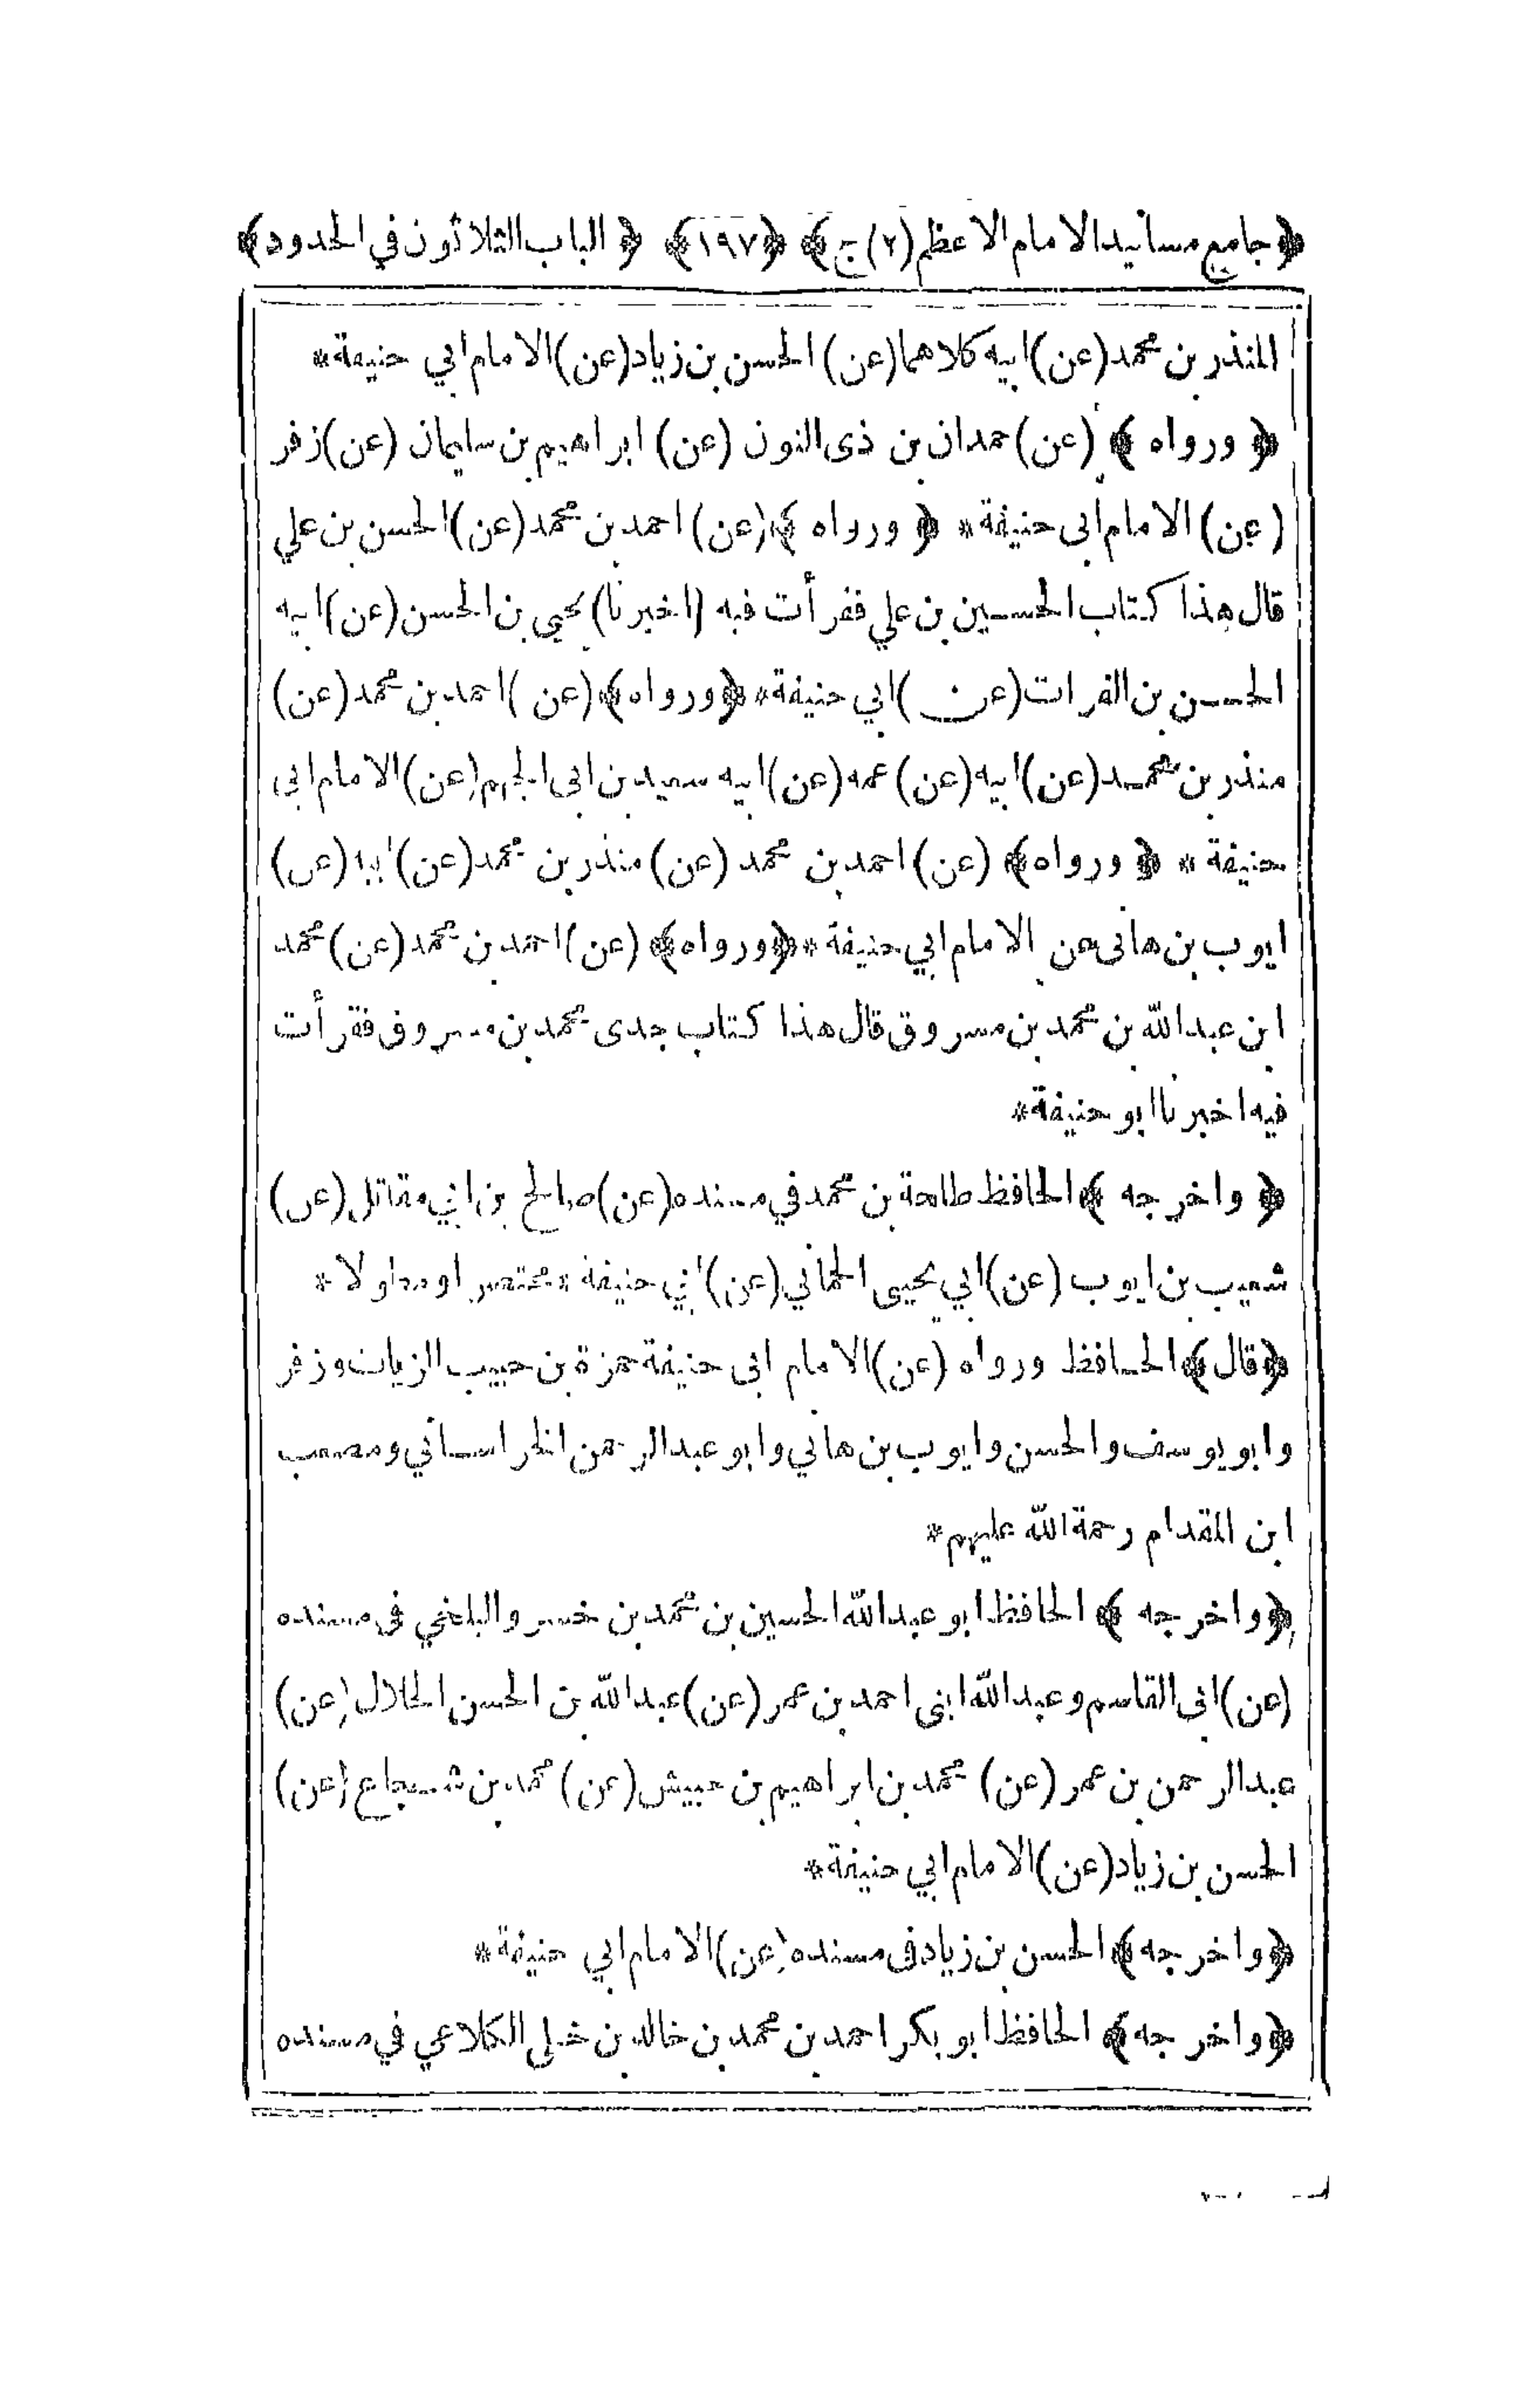 ﴿جامع مسانيد الامام الاعظم (٢) ج﴾ ﴿١٩٧﴾ ﴿الباب الثلاثون في الحدود﴾
المنذر بن محمد (عن) ابيه كلاهما (عن) الحسن بن زياد (عن) الامام ابي حنيفة*
﴿ورواه﴾ (عن) حمدان بن ذى النون (عن) ابراهيم بن سليمان (عن) زفر
(عن) الامام ابى حنيفة* ﴿ورواه﴾ (عن) احمد بن محمد (عن) الحسن بن علي
قال هذا كتاب الحسين بن علي فقرأت فيه (اخبرنا) يحيى بن الحسن (عن) ابيه
الحسن بن الفرات (عن) ابي حنيفة* ﴿ورواه﴾ (عن) احمد بن محمد (عن)
منذر بن محمد (عن) ابيه (عن) عمه (عن) ابيه سعيد بن ابى الجهم (عن) الامام ابى
حنيفة* ﴿ورواه﴾ (عن) احمد بن محمد (عن) منذر بن محمد (عن) (عن)
ايوب بن هانى عن الامام ابي حنيفة* ﴿ورواه﴾ (عن) احمد بن محمد (عن) محمد
ابن عبد الله بن محمد بن مسروق قال هذا كتاب جدى محمد بن مسروق فقرأت
فيه اخبرنا ابو حنيفة*
﴿واخرجه﴾ الحافظ طلحة بن محمد في مسنده (عن) صالح بن ابي مقاتل (عن)
شعيب بن ايوب (عن) ابي يحيى الحماني (عن) ابي حنيفة* مختصرا ومطولا*
﴿قال﴾ الحافظ ورواه (عن) الامام ابى حنيفة حمزة بن حبيب الزيات وزفر
وابو يوسف والحسن وايوب بن هاني وابو عبد الرحمن الخراساني ومصعب
ابن المقدام رحمة الله عليهم*
﴿واخرجه﴾ الحافظ ابو عبد الله الحسين بن محمد بن خسرو البلخي في مسنده
(عن) ابى القاسم وعبد الله ابنى احمد بن عمر (عن) عبد الله بن الحسن الخلال (عن)
عبد الرحمن بن عمر (عن) محمد بن ابراهيم بن حبيش (عن) محمد بن شجاع (عن)
الحسن بن زياد (عن) الامام ابي حنيفة*
﴿واخرجه﴾ الحسن بن زياد فى مسنده (عن) الامام ابي حنيفة*
﴿واخرجه﴾ الحافظ ابو بكر احمد بن محمد بن خالد بن خلى الكلاعي في مسنده